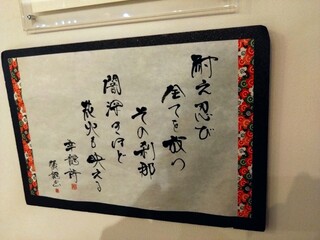 耐え忍び
全てを放つ
その刹那
闇深きほど
花火も映える